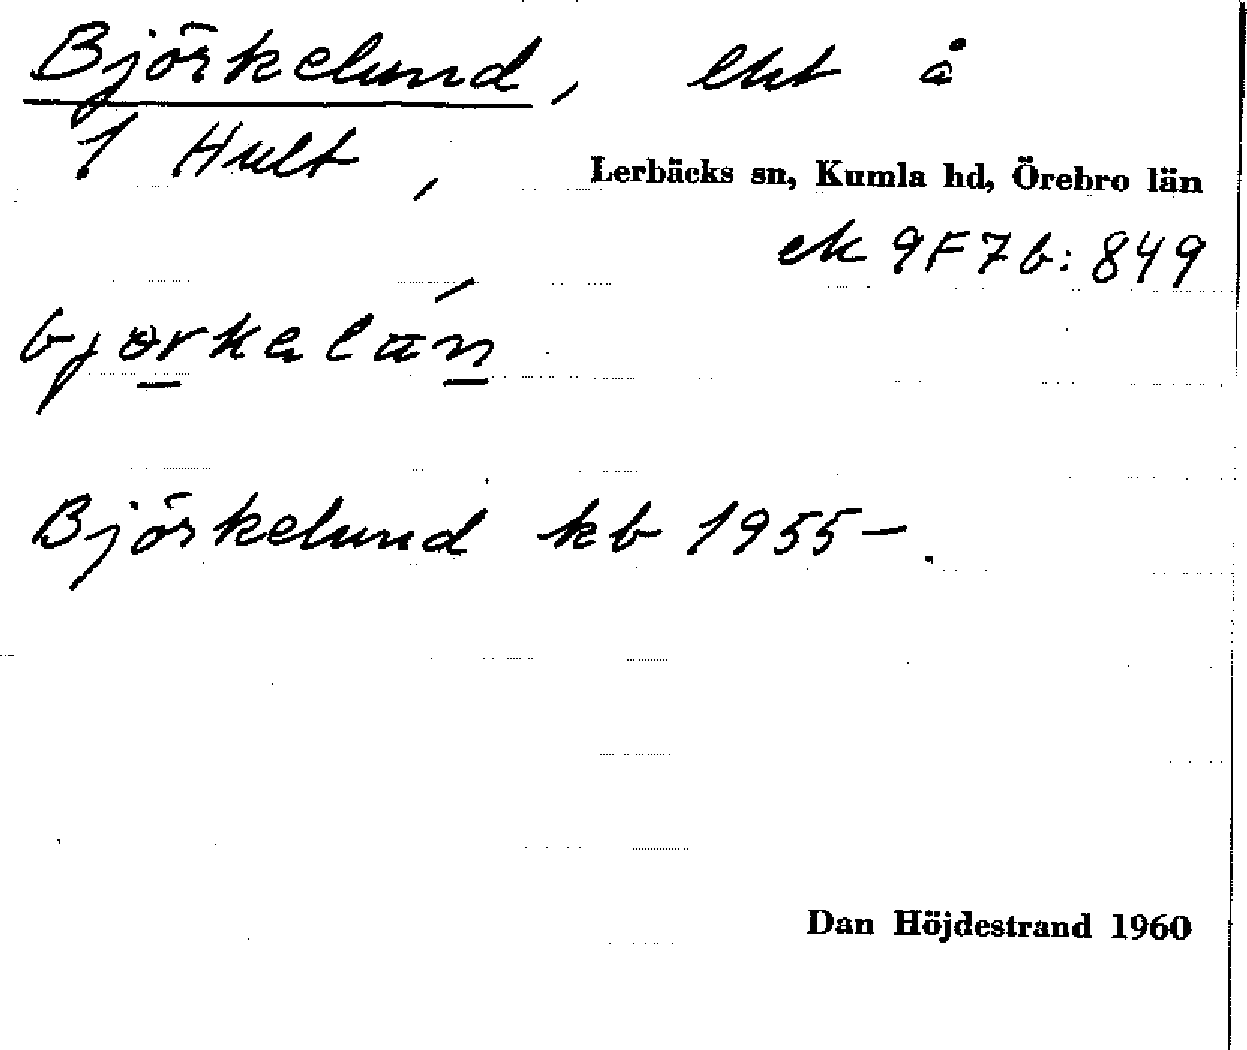 Björkelund, lht å
1 Hult,
Lerbäcks sn, Kumla hd, Örebro län
ek 9F7b:849
björkalun
Björkelund kb 1955–.
Dan Höjdestrand 1960